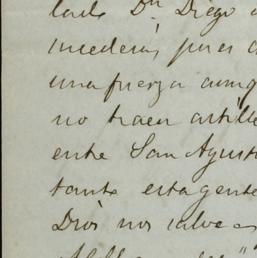 Dn Diego
pues
una fuerza aunq
no traen artille
ente San Agust
tante esta gente
Dios nos salve